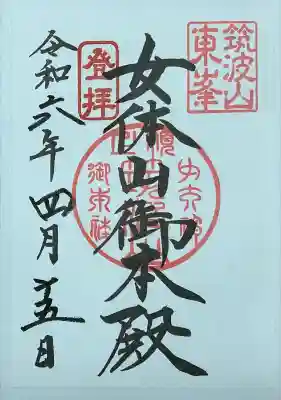 筑波山
東峯
登拝
女体山御本殿
令和六年四月十五日